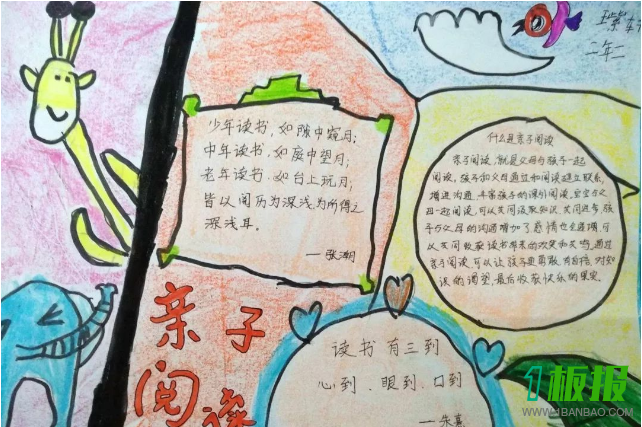 二年二
少年读书，如隙中窥月；
中年读书，如庭中望月；
老年读书，如台上玩月；
皆以阅历为深浅，为所得之
深浅耳。
—张潮
什么是亲子阅读
亲子阅读，就是父母与孩子一起
阅读，孩子和父母通过和阅读建立联系，
增进沟通，丰富孩子的课外阅读。
一起阅读，可以共同汲取知识，共同进步，孩
子与父母的沟通增加了，感情也会増
以共同收获读书带来的欢笑和关爱，通过
亲子阅读，可以让孩子更勇敢，有自信，对知
识的渴望，最后收获快乐的果实。
亲子
阅读
读书有三到
心到、眼到、口到
—朱熹
1板报
WWW.1BANBAO.COM